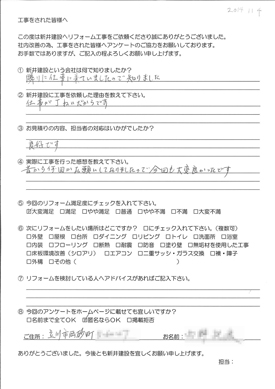 2017 11 9
工事をされた皆様へ
この度は新井建設へリフォーム工事をご依頼くださり誠にありがとうございました。
社内改善の為、工事をされた皆様へアンケートのご協力をお願いしております。
お手数ではありますが、ご記入の程よろしくお願い申し上げます。
① 新井建設という会社は何で知りましたか?
隣りに仕事に来ていましたので知りました
② 新井建設に工事を依頼した理由を教えて下さい。
仕事がていねいだからです
③ お見積りの内容、担当者の対応はいかがでしたか?
良好です
④ 実際に工事を行った感想を教えて下さい。
今回も大変良かったです
⑤ 今回のリフォーム満足度にチェックを入れて下さい。
☑大変満足 □満足 □やや満足 □普通 □やや不満 □不満 □大変不満
⑥ 次にリフォームをしたい場所はどこですか? □にチェック入れて下さい。（複数可）
□外壁 □屋根 □台所 □ダイニング □リビング □トイレ □洗面所 □浴室
□内装 □フローリング □断熱 □耐震 □防音 □塗り壁 □無垢材を使用した工事
□床板環境改善（シロアリ） □エアコン □二重サッシ・ガラス交換 □襖・障子
□外構 □その他（ ）
⑦ リフォームを検討している人へアドバイスがあればご記入下さい。
⑧ 今回のアンケートをホームページに載せても宜しいですか?
□名前まで全てOK ☑匿名ならOK □掲載拒否
ご住所： 立川市砂川町 お名前：
ありがとうございました。今後とも新井建設を宜しくお願い申し上げます。
担当：